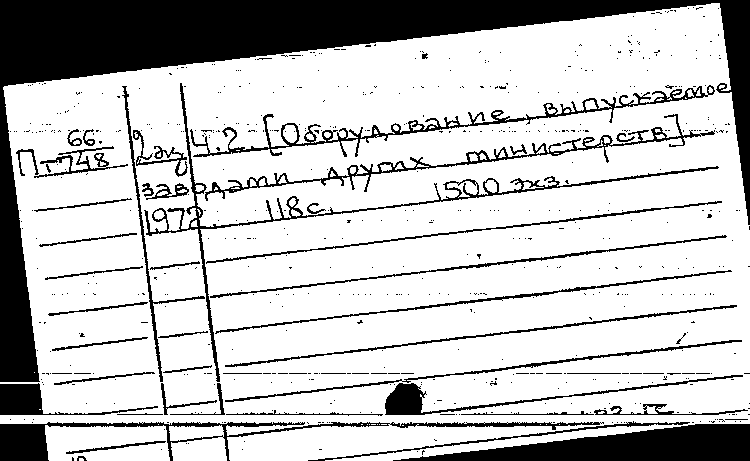 66.
Пт748
2 экз
Ч.2. [Оборудование, выпускаемое
заводами других министерств].
1972. 118с. 1500 экз.